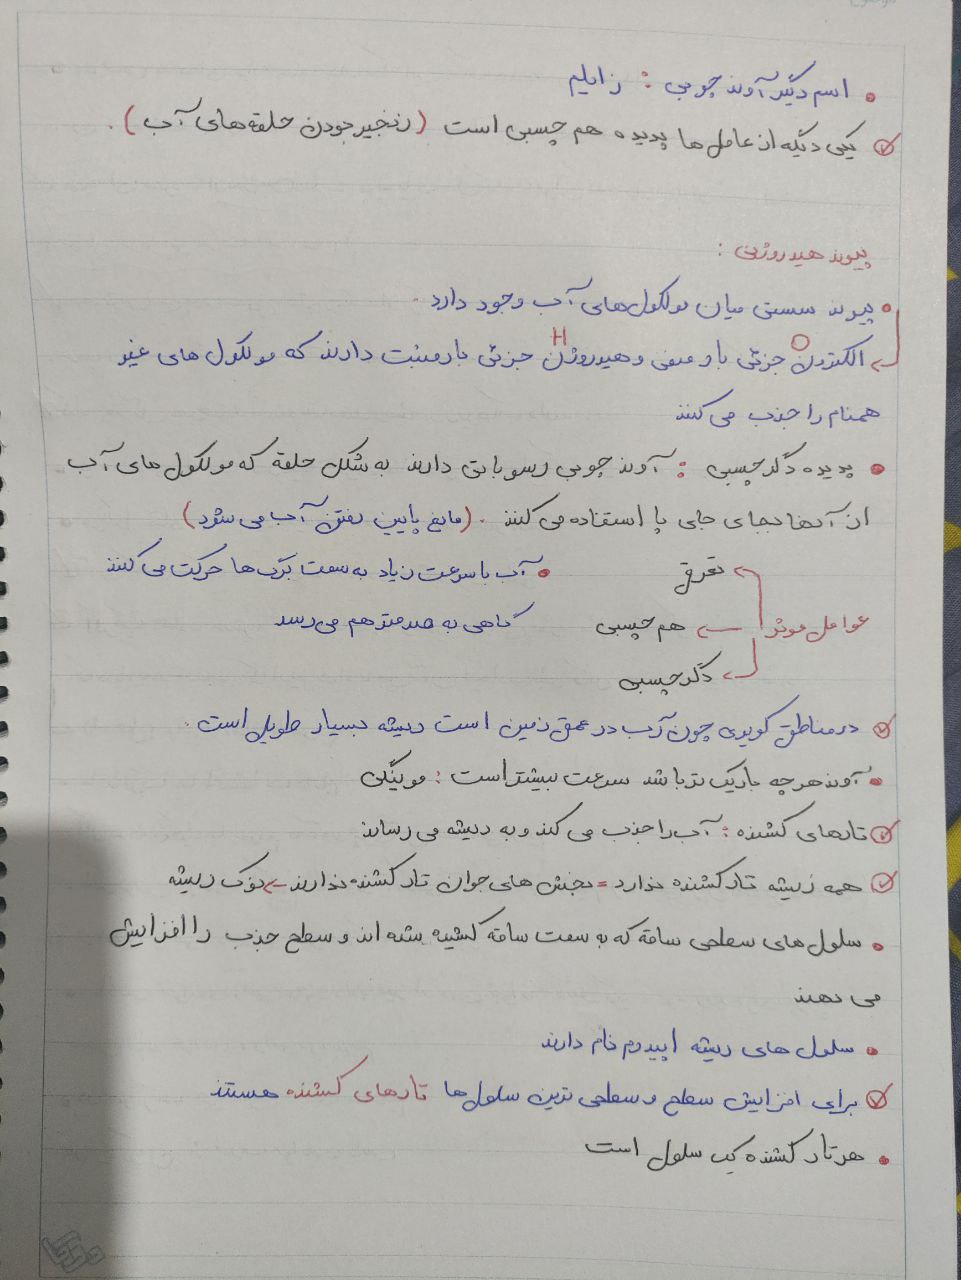 • اسم دیگر آوند چوبی : زایلم
یکی دیگه از عامل ها پدیده هم چسبی است (زنجیر بودن حلقه های آب).
پیوند هیدروژنی :
• پیوند سستی میان مولکول های آب وجود دارد.
O H
الکترون جزئی بار منفی و هیدروژن جزئی بار مثبت دارند که مولکول های غیر
همنام را جذب می کنند
• پدیده دگرچسبی : آوند چوبی رسوباتی دارند به شکل حلقه که مولکول های آب
از آنها بجای جای پا استفاده می کنند. (مانع پایین رفتن آب می شود)
عوامل موثر
تعرق
هم چسبی
دگرچسبی
• آب با سرعت زیاد به سمت برگ ها حرکت می کنند
گاهی به صدمتر هم می رسد
در مناطق کویری چون آب در عمق زمین است ریشه بسیار طویل است.
• آوند هرچه باریک تر باشد سرعت بیشتر است : مویینگی
تارهای کشنده : آب را جذب می کند و به ریشه می رساند
همه ریشه تار کشنده ندارد = بخش های جوان تار کشنده ندارند ← نوک ریشه
• سلول های سطحی ساقه که به سمت ساقه کشیده شده اند و سطح جذب را افزایش
می دهند
• سلول های ریشه اپیدرم نام دارند
برای افزایش سطح و سطحی ترین سلول ها تارهای کشنده هستند
• هر تار کشنده یک سلول است